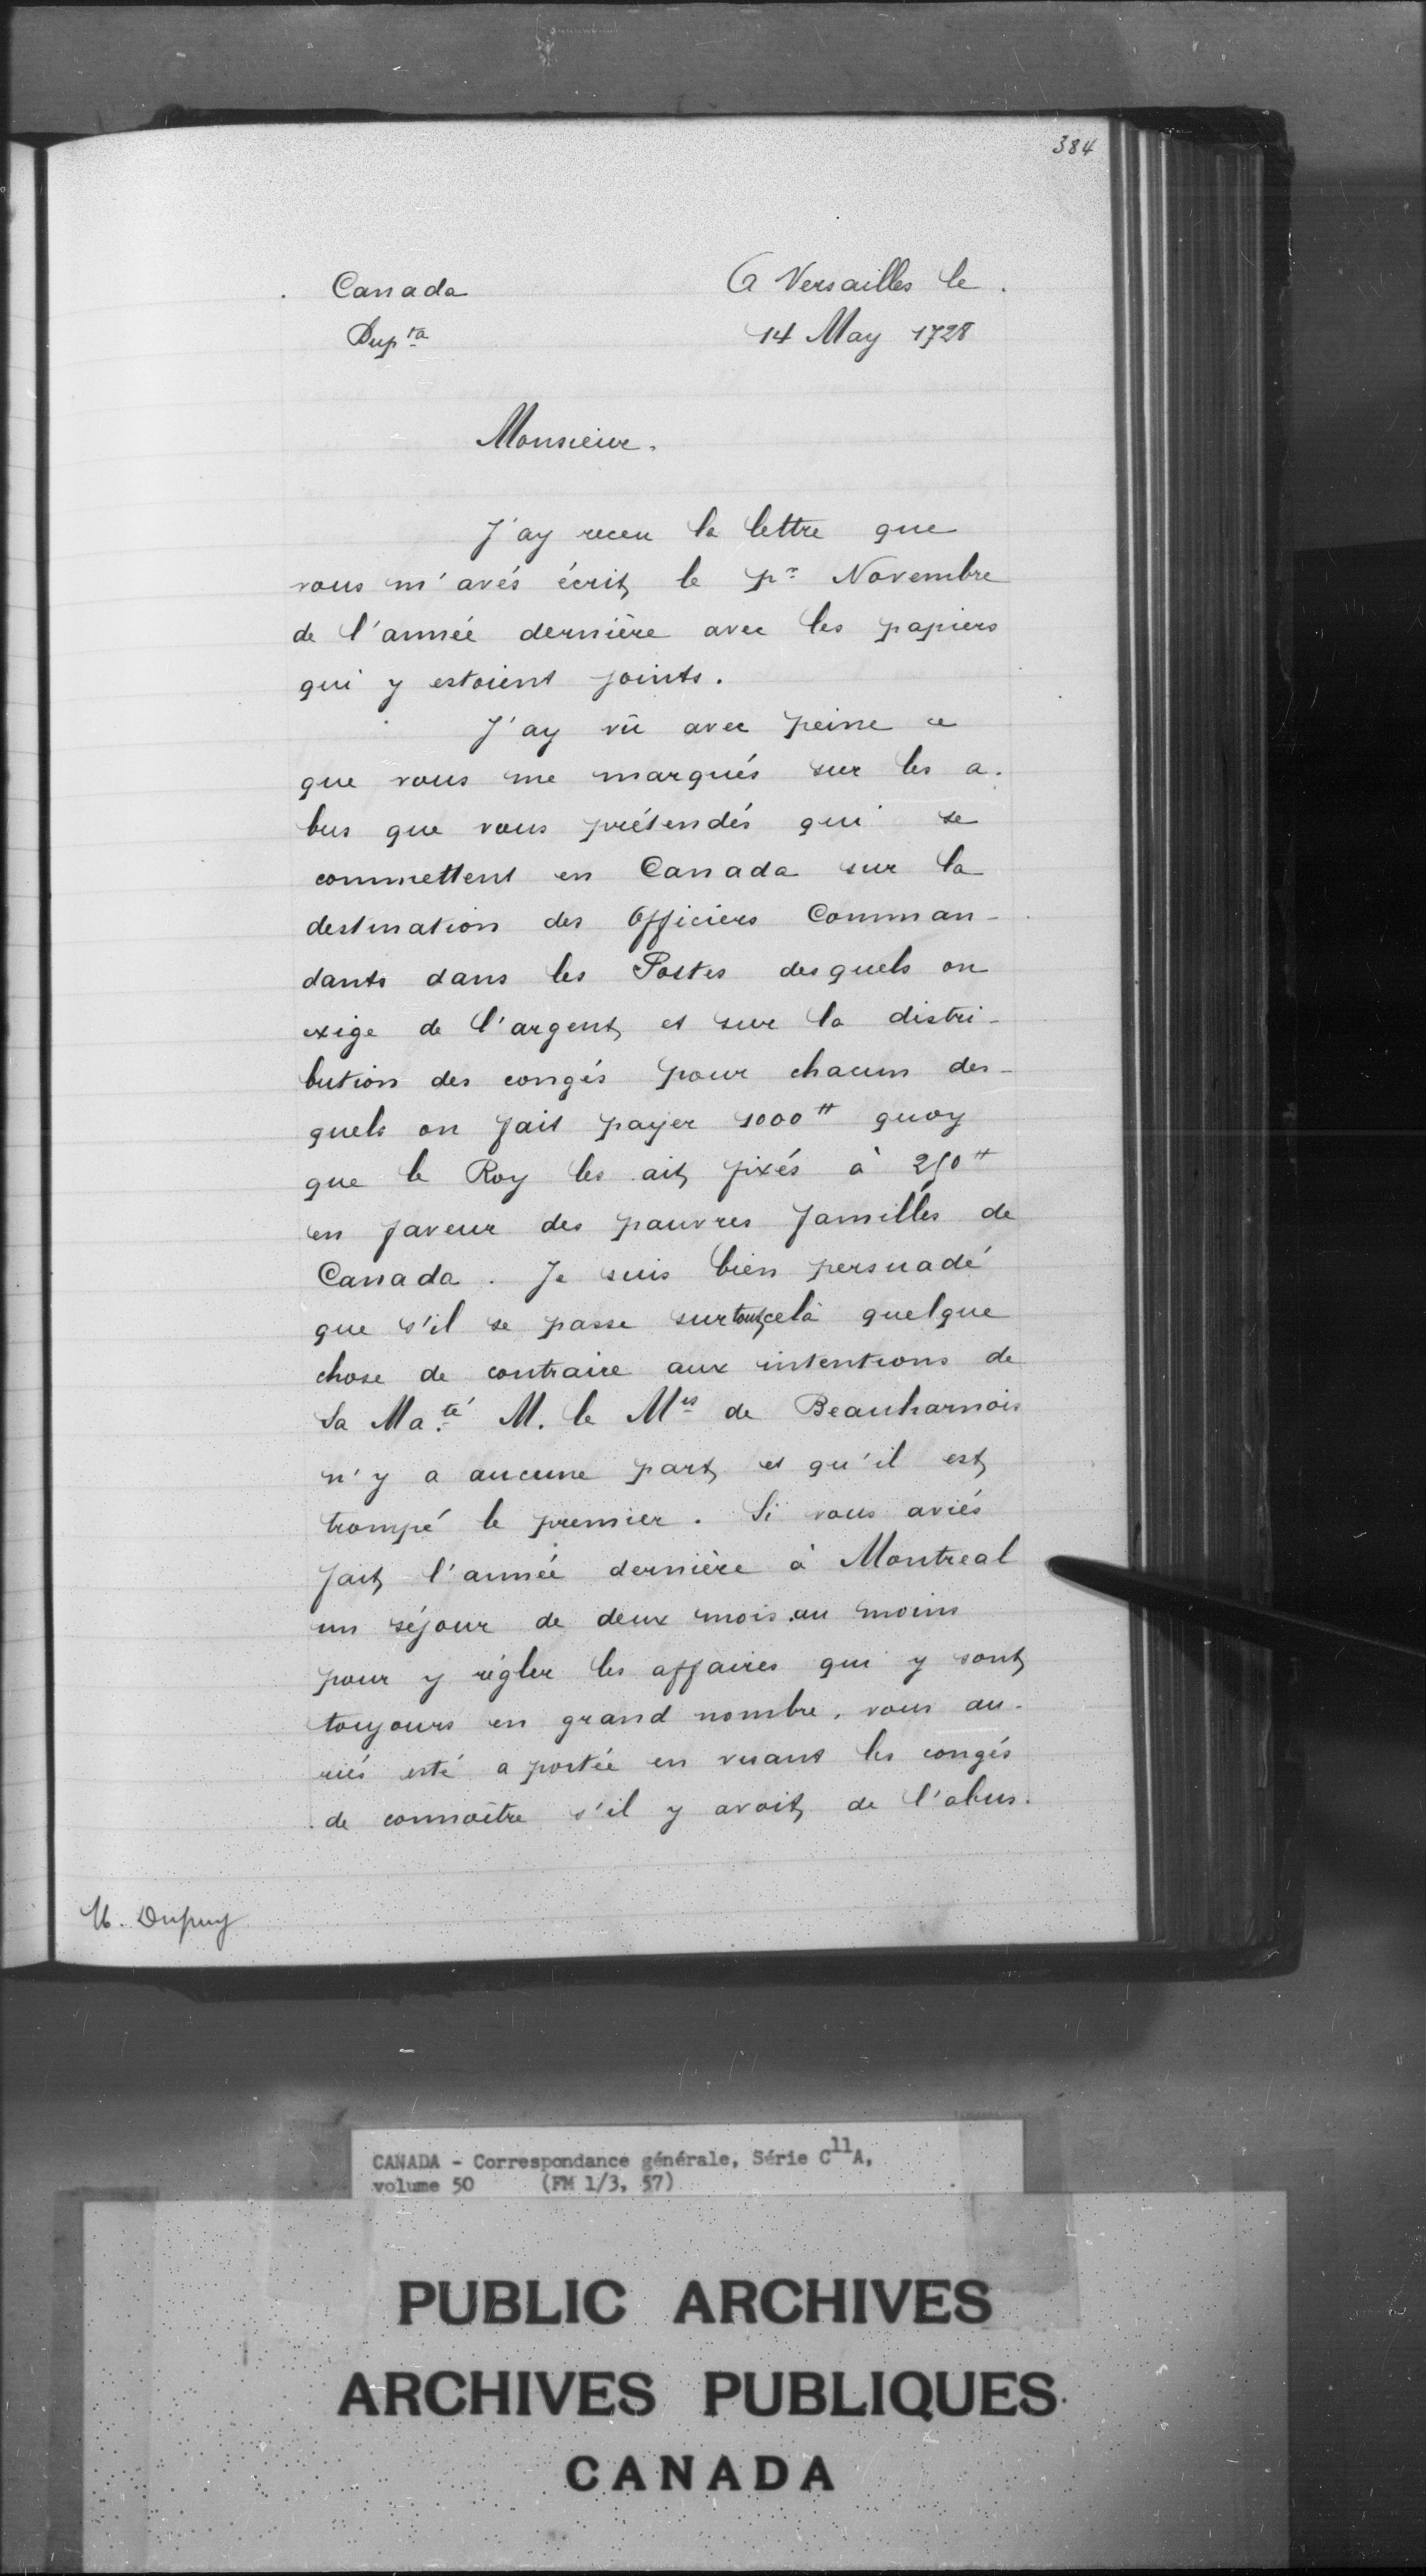 384
Canada
A Versailles le
Dupta
14 May 1728
Monsieur.
J'ay receu la lettre que
vous m'avés écrit le pr Novembre
de l'année dernière avec les papiers
qui y estoient joints.
J'ay vû avec peine ce
que vous me marqués sur les a-
bus que vous prétendés qui se
commettent en Canada sur la
destination des Officiers Comman-
dants dans les Postes desquels on
exige de l'argent et sur la distri-
bution des congés pour chacun des-
quels on fait payer 1000tt quoy
que le Roy les ait fixés à 250tt
en faveur des pauvres familles de
Canada. Je suis bien persuadé
que s'il se passe sur tout celà quelque
chose de contraire aux intentions de
Sa Ma.té M. le Mis de Beauharnois
n'y a aucune part et qu'il est
trompé le premier. Si vous aviés
fait l'année dernière à Montreal
un séjour de deux mois au moins
pour y régler les affaires qui y sont
toujours en grand nombre, vous au-
riés esté a portée en visant les congés
de connaître s'il y avoit de l'abus.
M. Dupuy
CANADA - Correspondance générale, Série C11A,
volume 50 (FM 1/3, 57)
PUBLIC ARCHIVES
ARCHIVES PUBLIQUES
CANADA